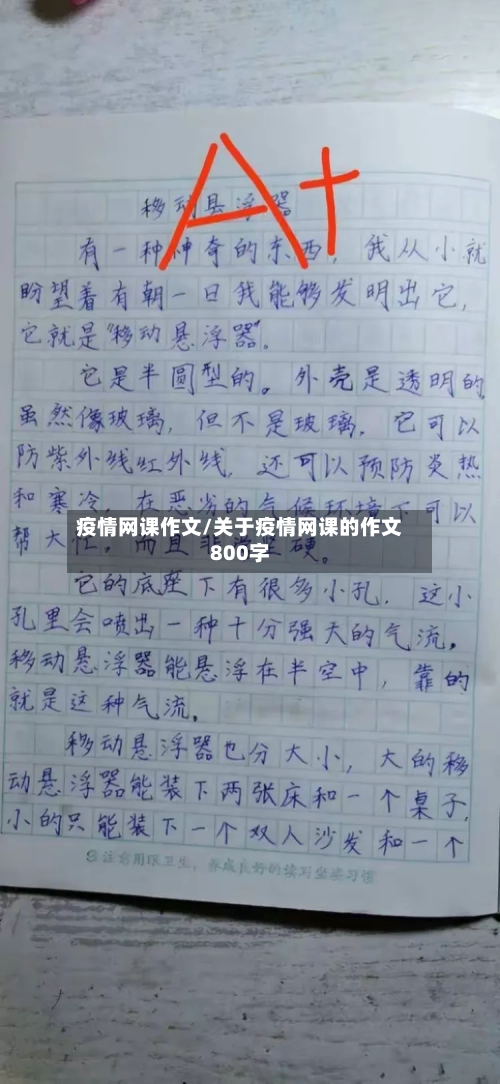 A+
移动悬浮器
有一种神奇的东西，我从小就
盼望着有朝一日我能够发明出它，
它就是“移动悬浮器”。
它是半圆型的。外壳是透明的
虽然像玻璃，但不是玻璃。它可以
防紫外线红外线，还可以预防炎热
和寒冷，在恶劣的气候环境下可以
帮大忙，而且非常坚硬。
疫情网课作文/关于疫情网课的作文
800字
它的底座下有很多小孔，这小
孔里会喷出一种十分强大的气流，
移动悬浮器能悬浮在半空中，靠的
就是这种气流。
移动悬浮器也分大小，大的移
动悬浮器能装下两张床和一个桌子，
小的只能装下一个双人沙发和一个
注意用眼卫生，养成良好的读写坐姿习惯